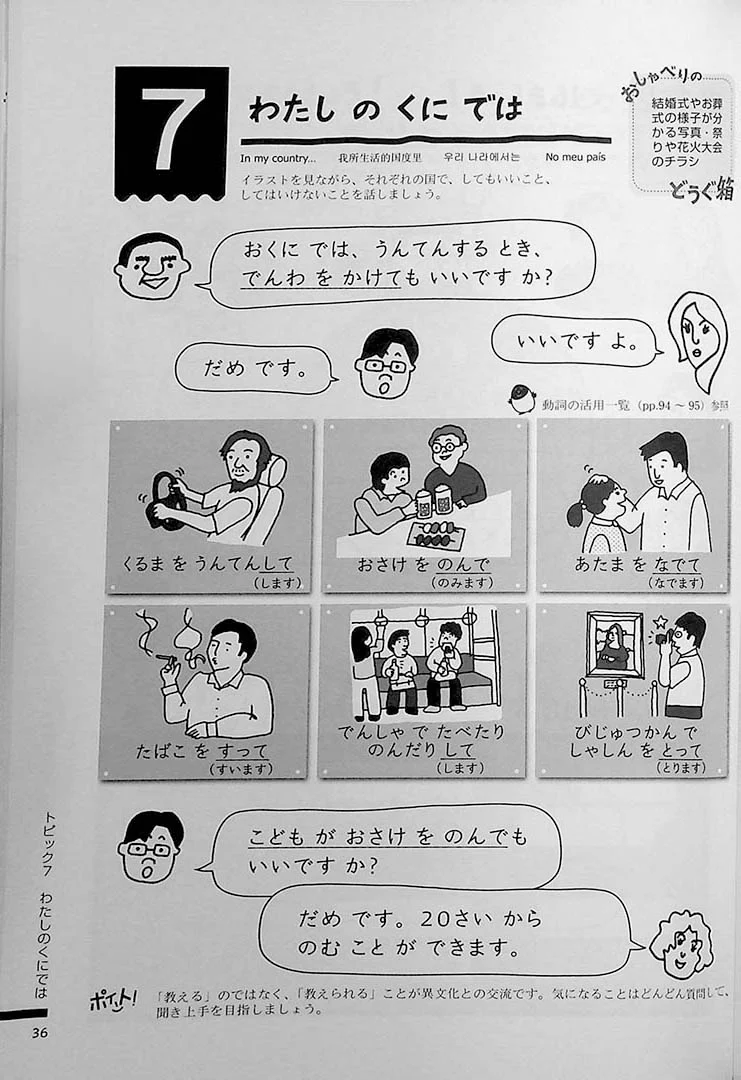 7
わたし の くに では
In my country... 我所生活的国度里 우리 나라에서는 No meu país
イラストを見ながら、それぞれの国で、してもいいこと、
してはいけないことを話しましょう。
おしゃべりの
結婚式やお葬
式の様子が分
かる写真・祭
りや花火大会
のチラシ
どうぐ箱
おくに では、うんてんする とき、
でんわ を かけても いいです か?
いいです よ。
だめ です。
動詞の活用一覧(pp.94 ～ 95)参照
くるま を うんてんして
(します)
おさけ を のんで
(のみます)
あたま を なでて
(なでます)
たばこ を すって
(すいます)
でんしゃ で たべたり
のんだり して
(します)
びじゅつかん で
しゃしん を とって
(とります)
こども が おさけ を のんでも
いいです か?
だめ です。20さい から
のむ こと が できます。
ポイント!
「教える」のではなく、「教えられる」ことが異文化との交流です。気になることはどんどん質問して、
聞き上手を目指しましょう。
トピック7 わたしのくにでは
36